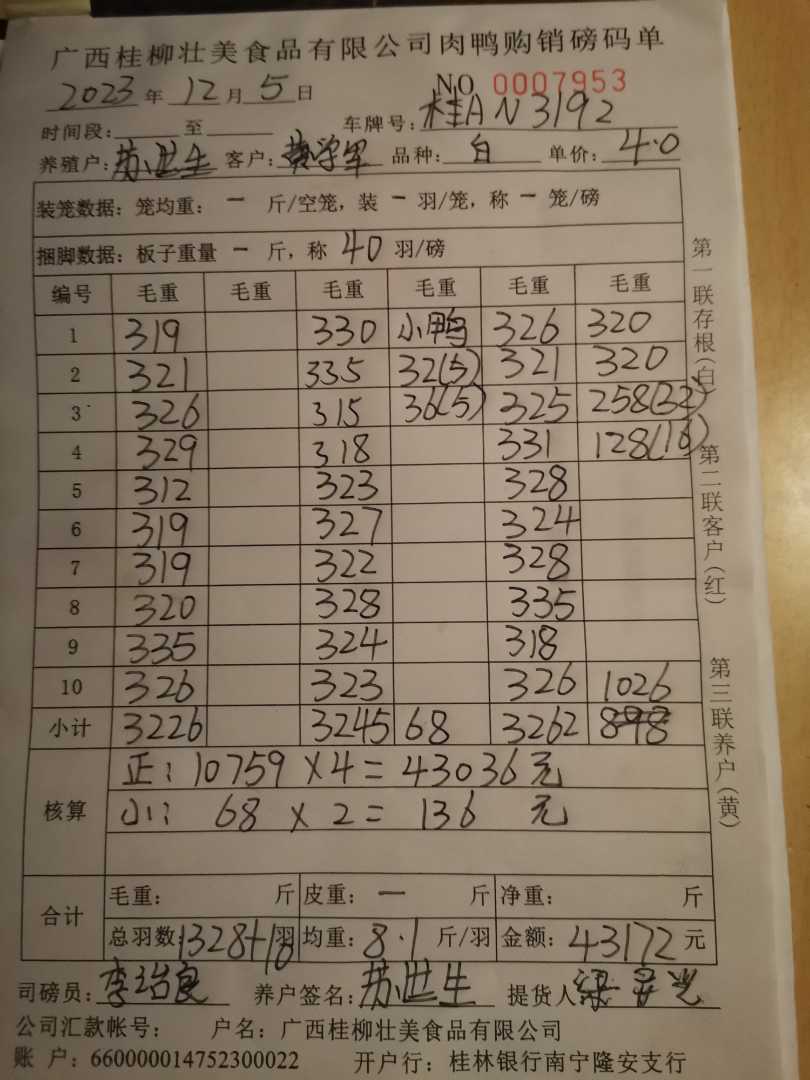 广西桂柳壮美食品有限公司肉鸭购销磅码单
2023年12月5日 NO 0007953
时间段:____至____ 车牌号:桂AN3192
养殖户:苏世生 客户:黄学军 品种:白 单价:4.0
装笼数据:笼均重:一斤/空笼,装一羽/笼,称一笼/磅
捆脚数据:板子重量一斤,称40羽/磅
编号 毛重 毛重 毛重 毛重 毛重 毛重
1 319 330 小鸭 326 320
2 321 335 32(5) 321 320
3 326 315 36(5) 325 258(32)
4 329 318 331 128(16)
5 312 323 328
6 319 327 324
7 319 322 328
8 320 328 335
9 335 324 318
10 326 323 326 1026
小计 3226 3245 68 3262 898
核算
正:10759×4=43036元
小:68×2=136元
合计
毛重: 斤 皮重:一 斤 净重: 斤
总羽数:1328+10羽 均重:8.1斤/羽 金额:43172元
司磅员:李治良 养户签名:苏世生 提货人:梁
公司汇款帐号: 户名:广西桂柳壮美食品有限公司
账 户:660000014752300022 开户行:桂林银行南宁隆安支行
第一联存根(白)
第二联客户(红)
第三联养户(黄)